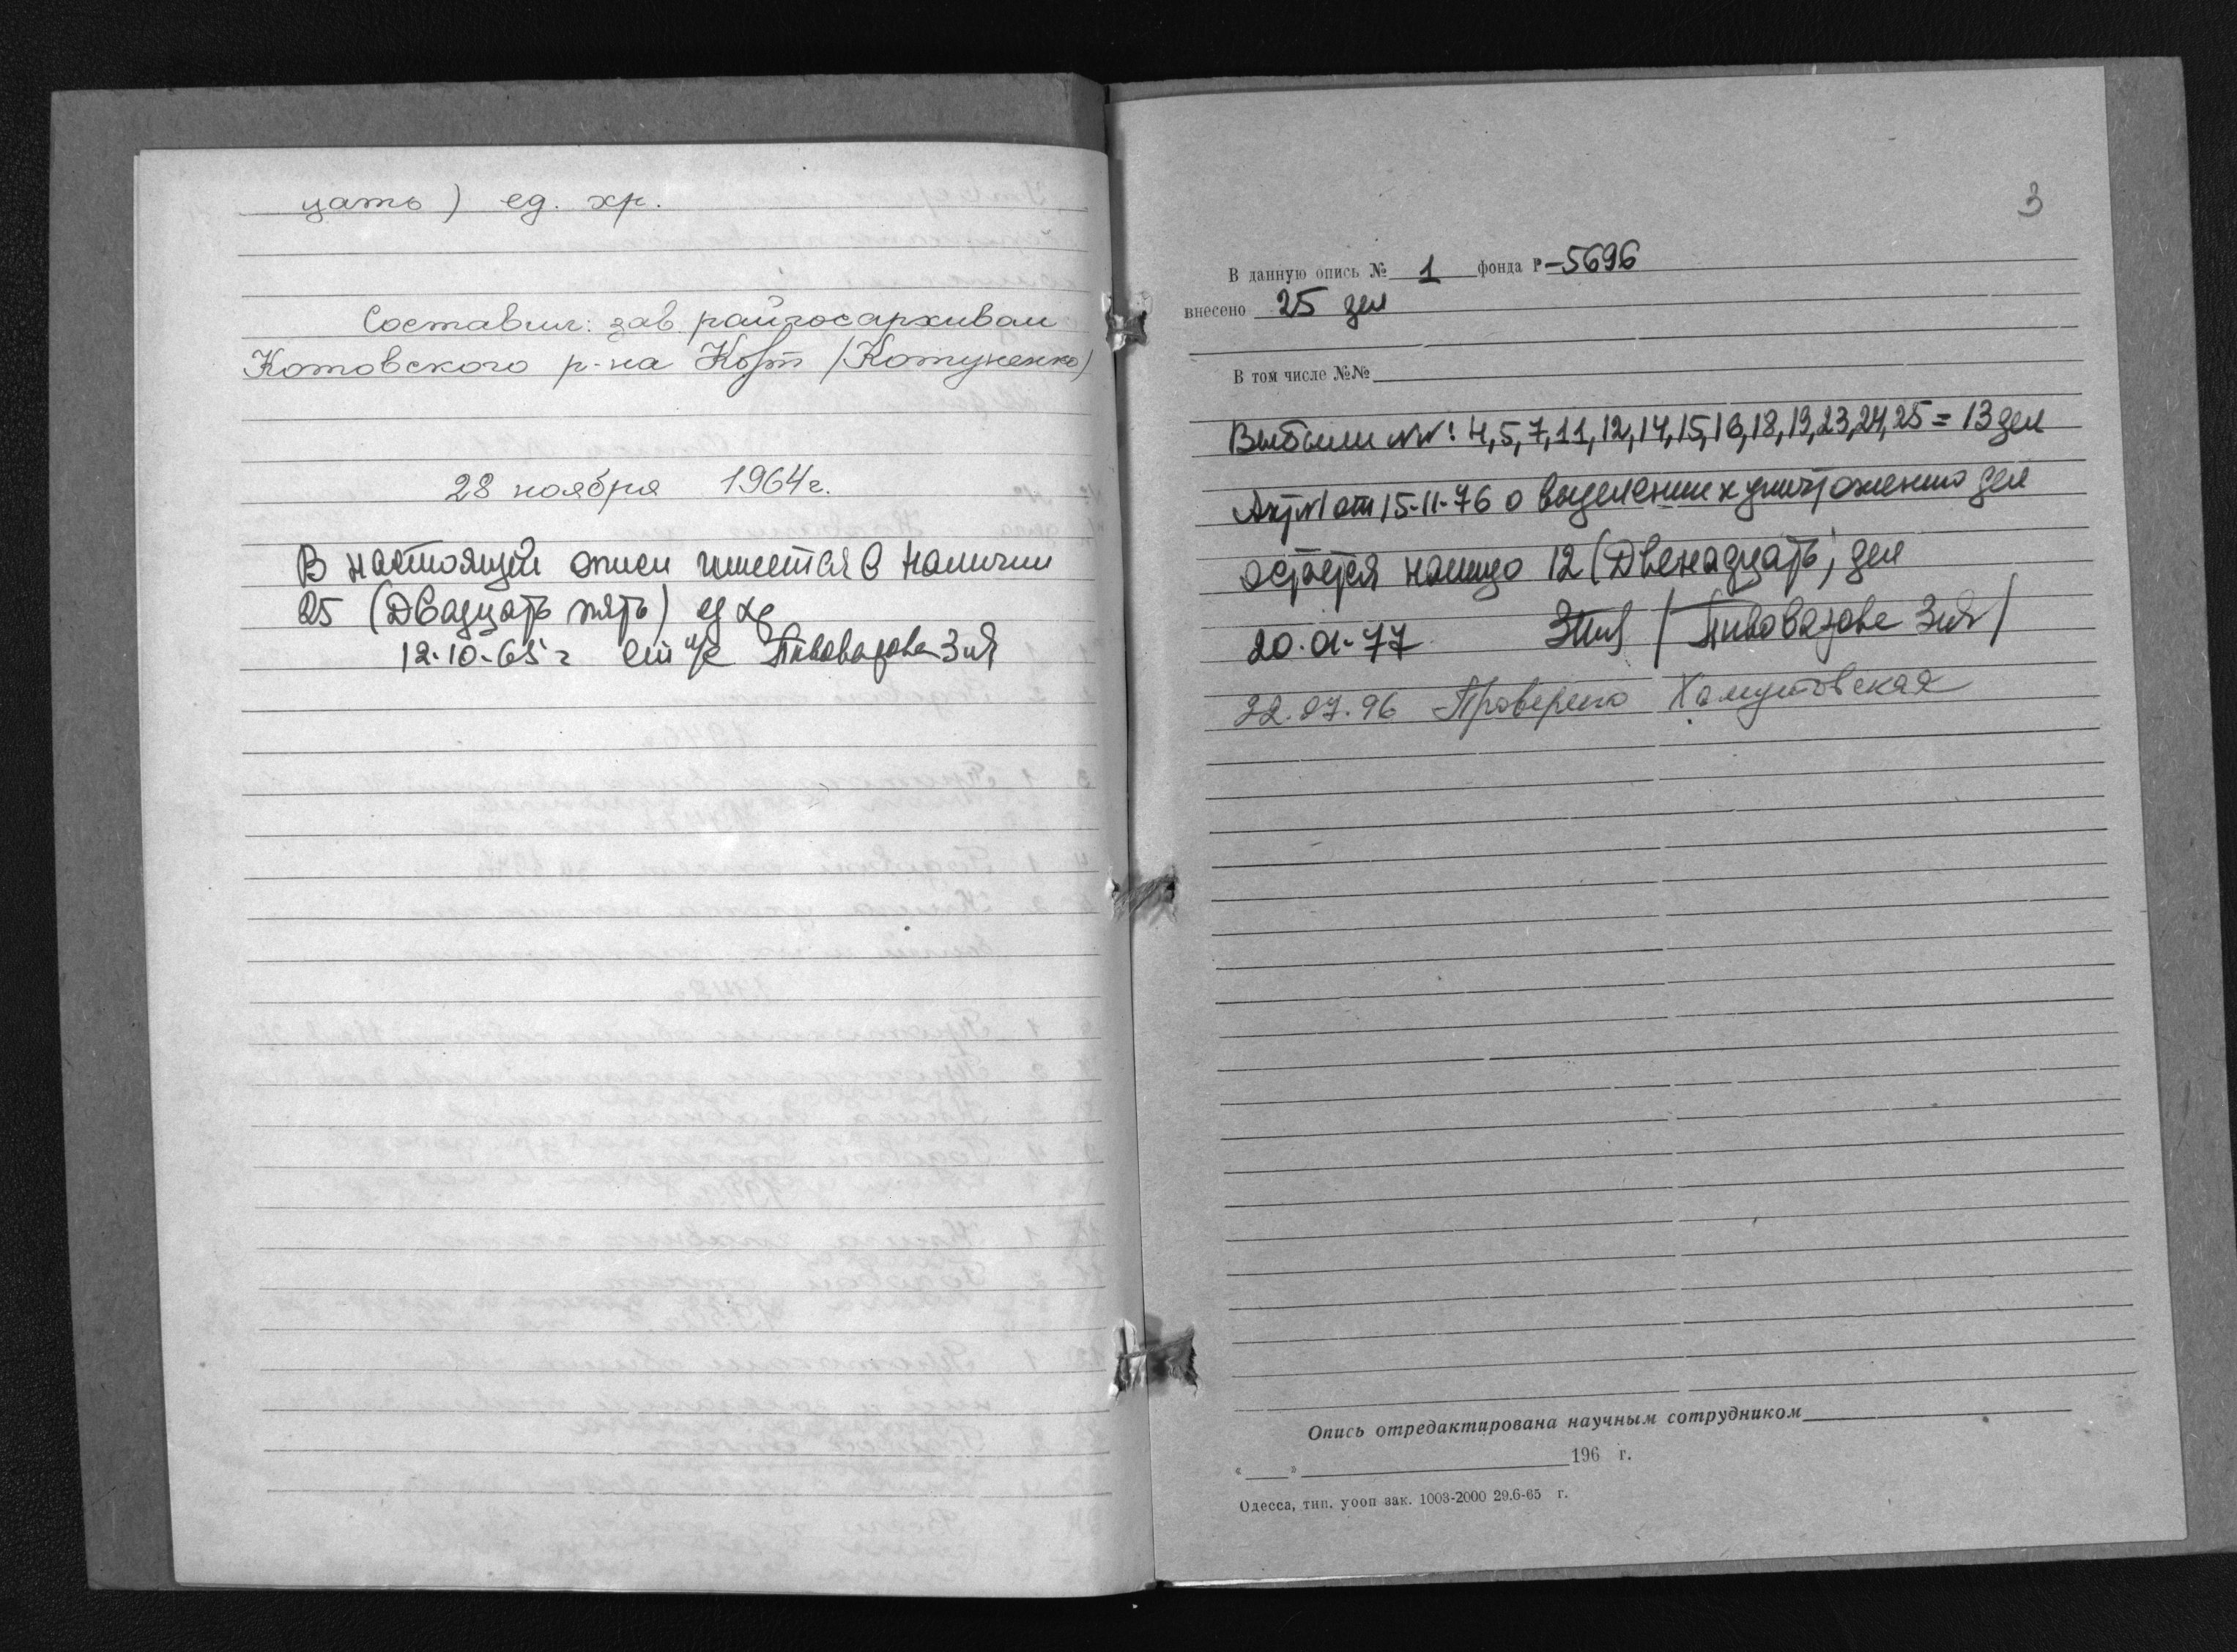 цать) ед. хр.
Составил: зав райгосархивом
Котовского р-на /Котуненко/
28 ноября 1964г.
В настоящей описи имеется в наличии
25 (Двадцать пять) ед хр
12-10-65 г Пивоварова
3
В данную опись № 1 фонда Р-5696
внесено 25 дел
В том числе №№
Выбыли №№: 4,5,7,11,12,14,15,16,18,19,23,24,25 = 13 дел
Акт №1 от 15-11-76 о выделении к уничтожению дел
остается налицо 12 (Двенадцать) дел
20.01-77 /Пивоварова
22.07.96 Проверено Хамутовская
Опись отредактирована научным сотрудником
« » 196 г.
Одесса, тип. уооп зак. 1003-2000 29.6-65 г.